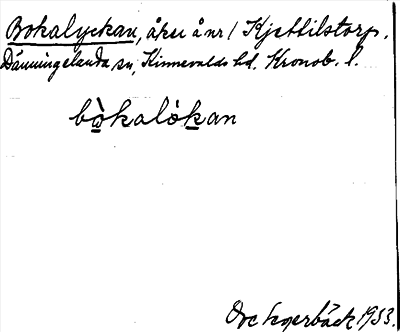 Bokalyckan, åker å nr 1 Kjettilstorp,
Dänningelanda sn, Kinnevalds hd. Kronob. l.
bòkalókan
Ove Segerbäck 1933.